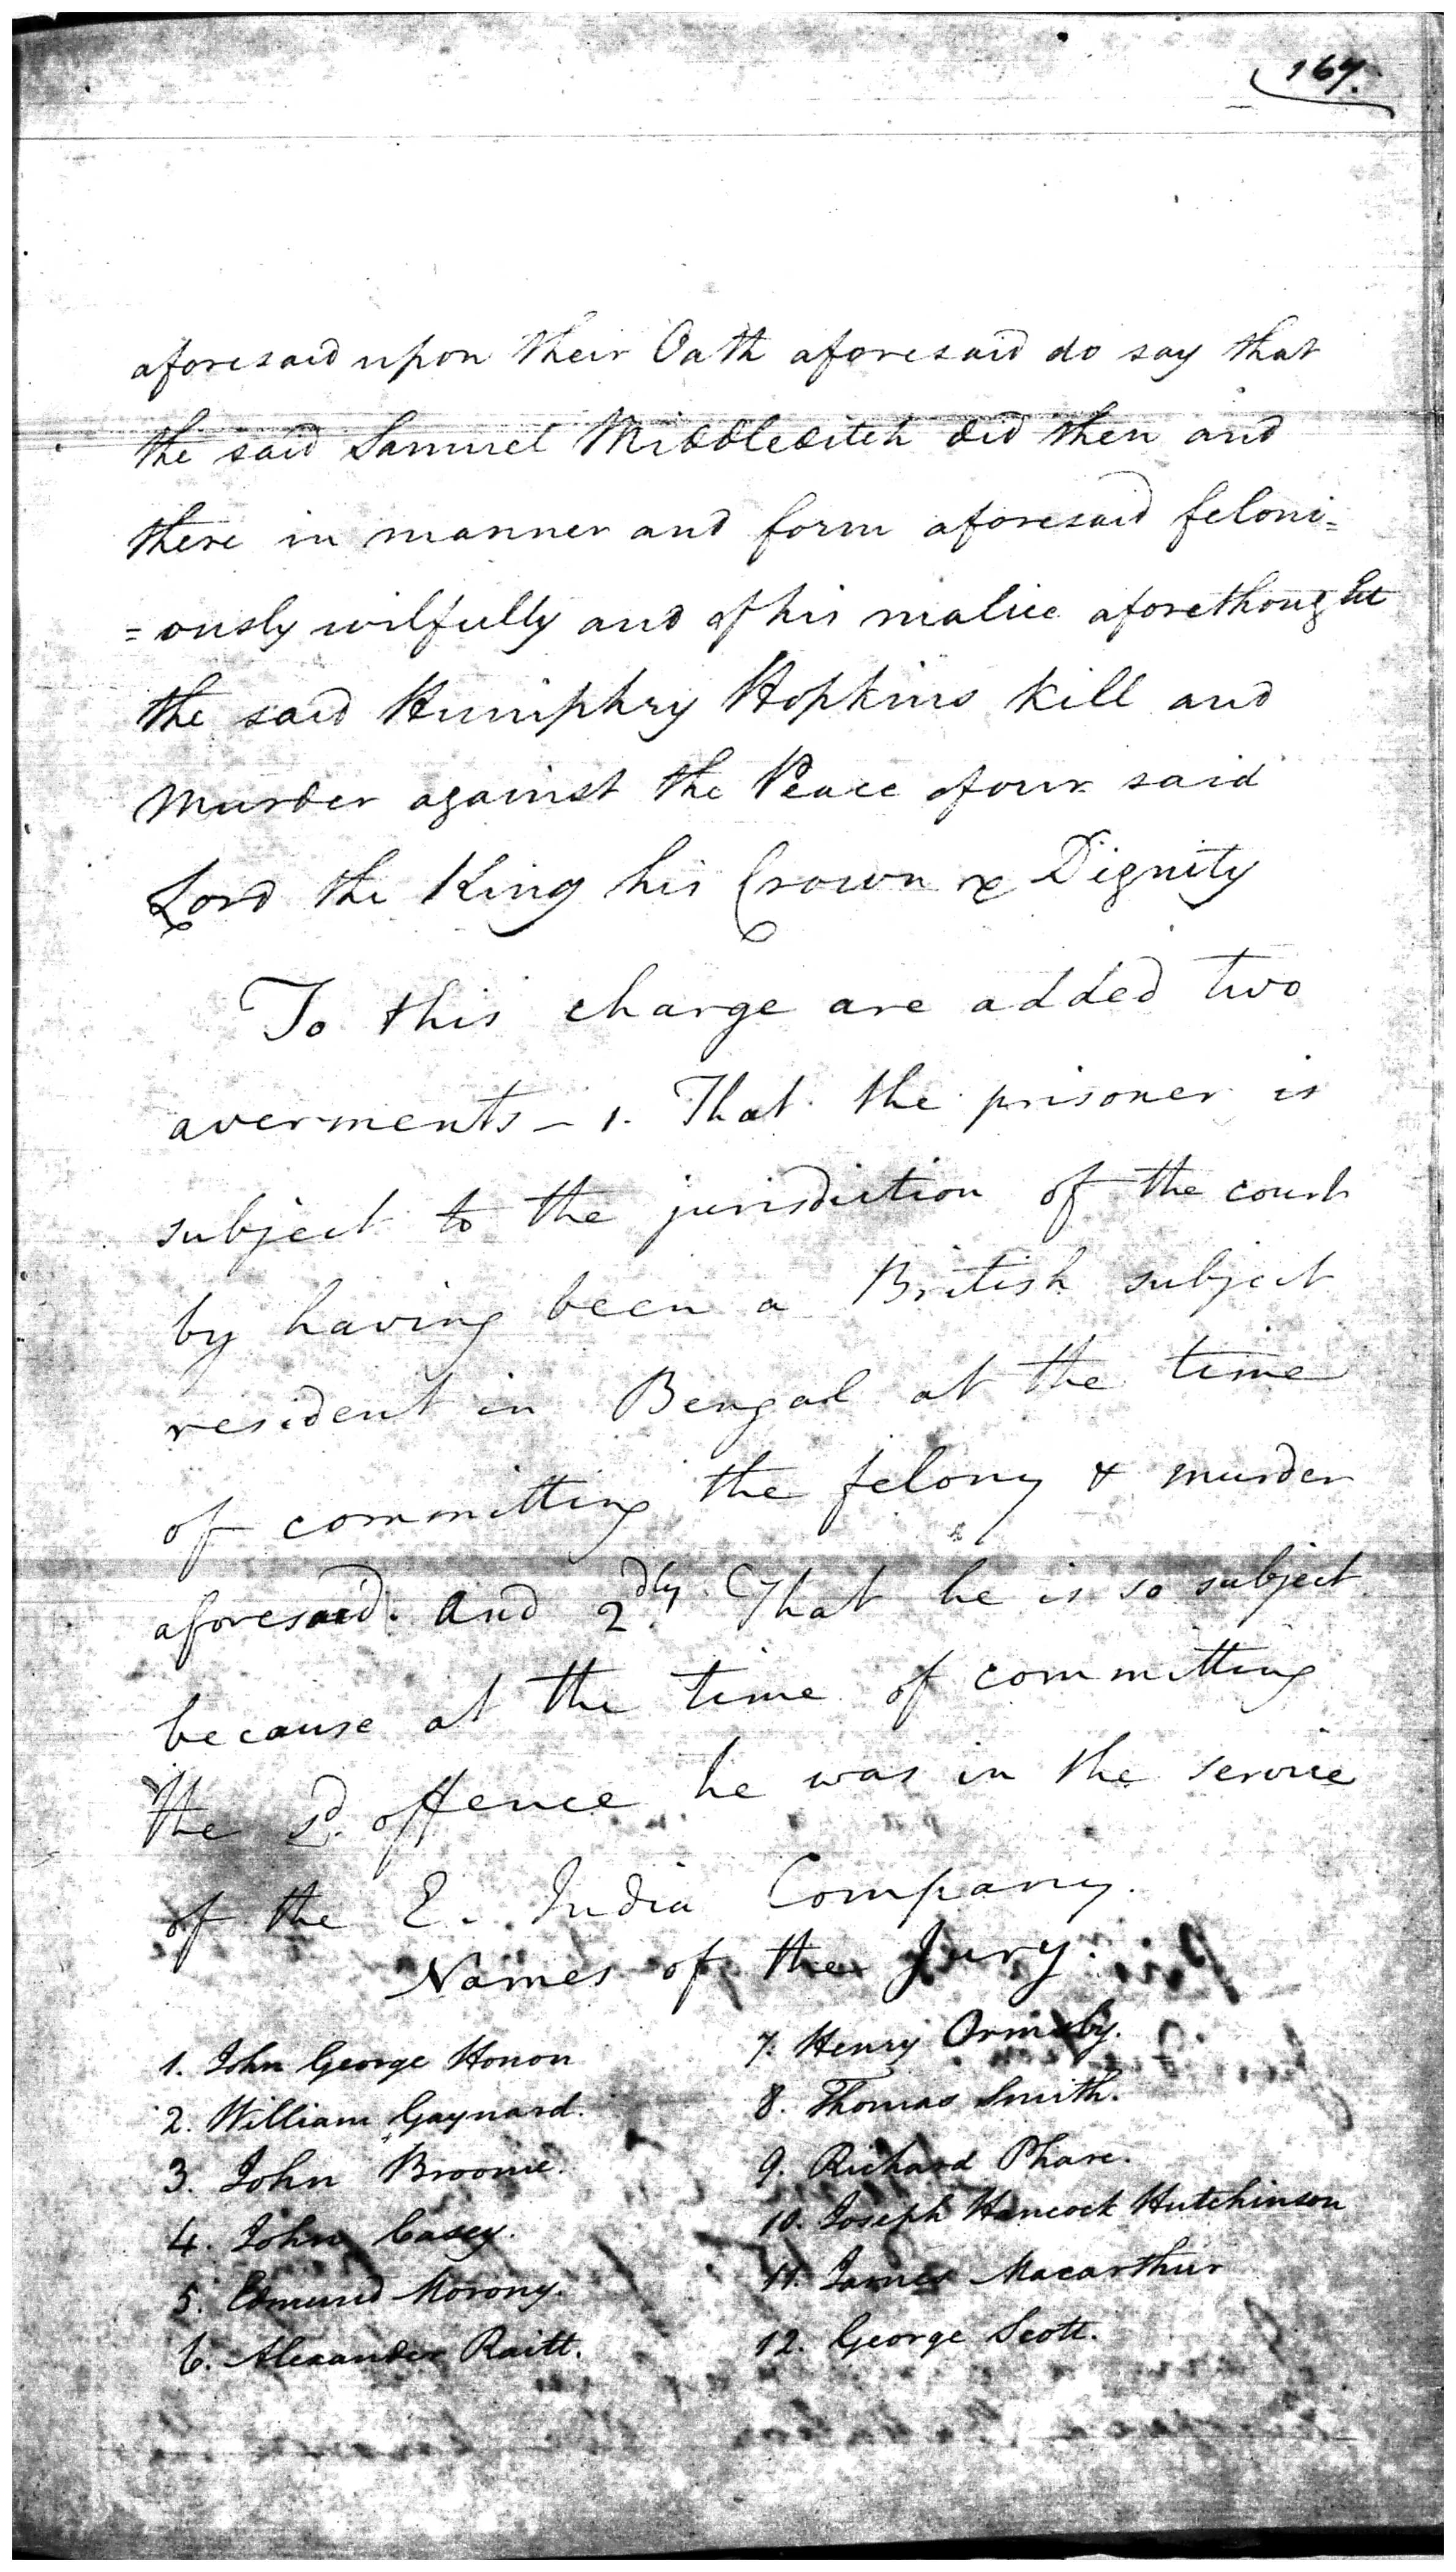 167.
aforesaid upon their Oath aforesaid do say that
the said Samuel Middleditch did then and
there in manner and form aforesaid feloni=
=ously wilfully and of his malice aforethought
the said Humphry Hopkins kill and
Murder against the Peace of our said
Lord the King his Crown & Dignity
To this charge are added two
averments - 1. That the prisoner is
subject to the jurisdiction of the court
by having been a British subject
resident in Bengal at the time
of committing the felony & murder
aforesaid. And 2dly. That he is so subject
because at the time of committing
the sd. offence he was in the service
of the E. India Company.
Names of the Jury.
1. John George Honon
2. William Gaynard.
3. John Broome.
4. John Casey.
5. Edmund Morony.
6. Alexander Raitt.
7. Henry Ormsby.
8. Thomas Smith.
9. Richard Phare.
10. Joseph Hancock Hutchinson
11. James Macarthur
12. George Scott.